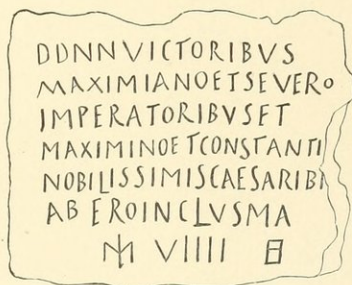 DDNNVICTORIBVS
MAXIMIANOETSEVERO
IMPERATORIBVSET
MAXIMINOETCONSTANTI
NOBILISSIMISCAESARIB
AB EROINCLVSMA
VIIII